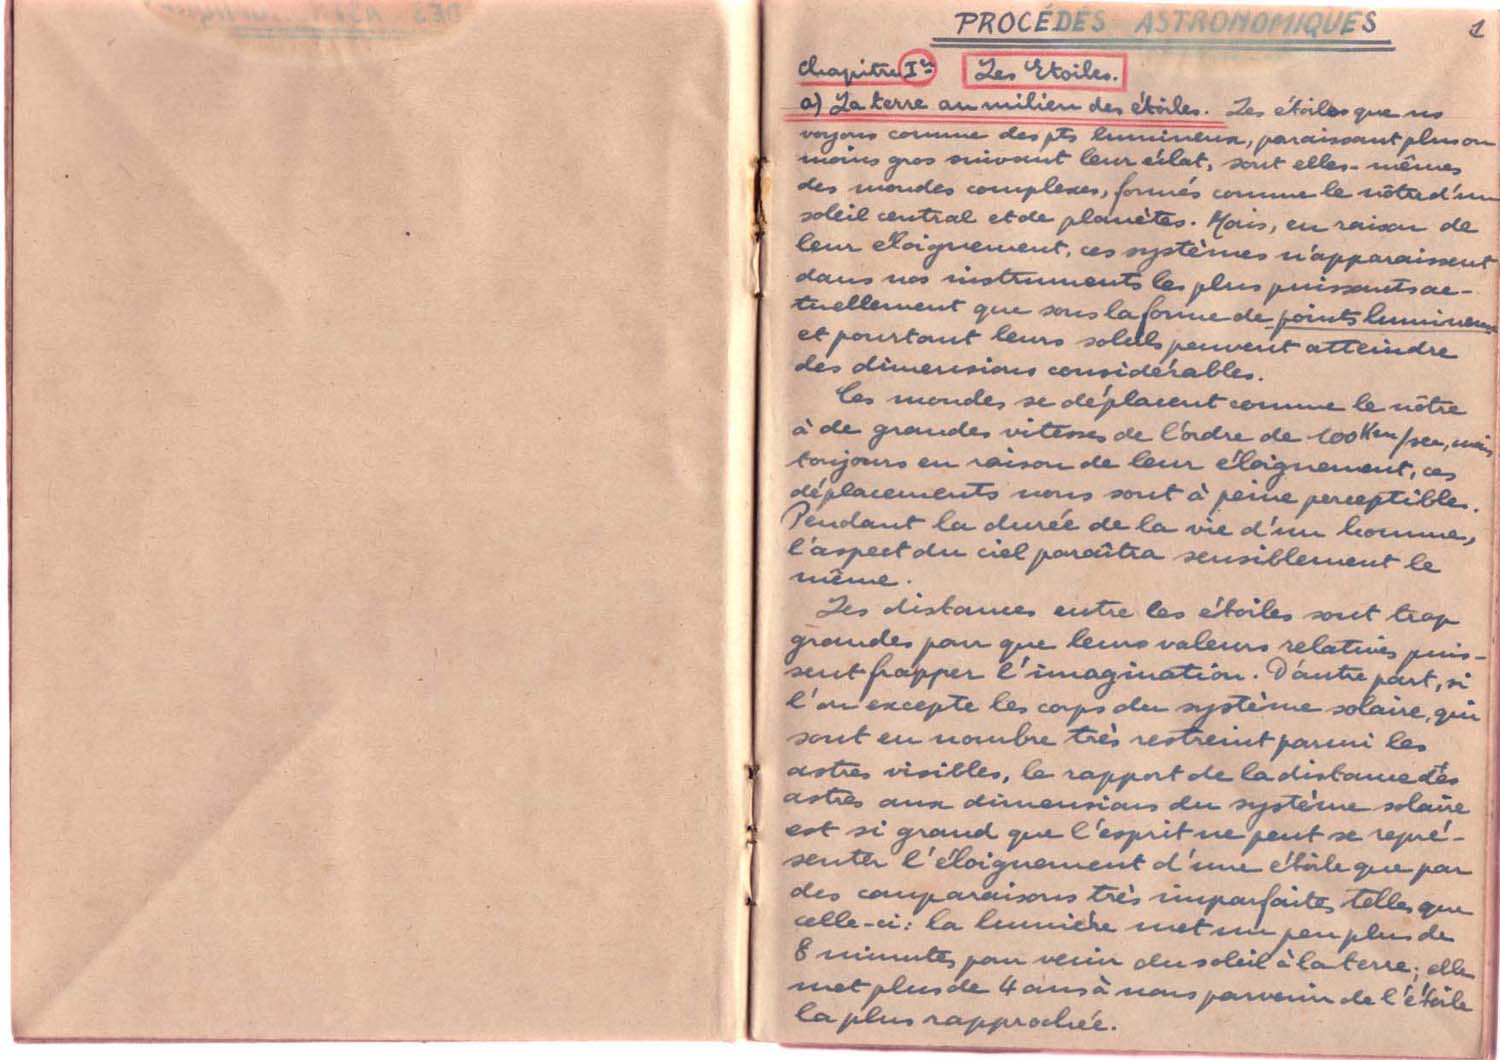 PROCÉDÉS ASTRONOMIQUES
1
Chapitre Ier Les Etoiles.
a) La terre au milieu des étoiles. Les étoiles que ns
voyons comme des pts lumineux, paraissant plus ou
moins gros suivant leur éclat, sont elles-mêmes
des mondes complexes, formés comme le nôtre d'un
soleil central et de planètes. Mais, en raison de
leur éloignement, ces systèmes n'apparaissent
dans nos instruments les plus puissants ac-
tuellement que sous la forme de points lumineux
et pourtant leurs soleils peuvent atteindre
des dimensions considérables.
Ces mondes se déplacent comme le nôtre
à de grandes vitesses de l'ordre de 100 Km/sec, mais
toujours en raison de leur éloignement, ces
déplacements nous sont à peine perceptible.
Pendant la durée de la vie d'un homme,
l'aspect du ciel paraîtra sensiblement le
même.
Les distances entre les étoiles sont trop
grandes pour que leurs valeurs relatives puis-
sent frapper l'imagination. D'autre part, si
l'on excepte les corps du système solaire, qui
sont en nombre très restreint parmi les
astres visibles, le rapport de la distance des
astres aux dimensions du système solaire
est si grand que l'esprit ne peut se repré-
senter l'éloignement d'une étoile que par
des comparaisons très imparfaites telles que
celle-ci: la lumière met un peu plus de
8 minutes pour venir du soleil à la terre; elle
met plus de 4 ans à nous parvenir de l'étoile
la plus rapprochée.